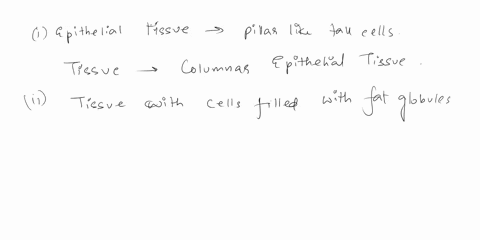 (i) Epithelial tissue → pillar like tall cells.
Tissue → Columnar Epithelial Tissue.
(ii) Tissue with cells filled with fat globules